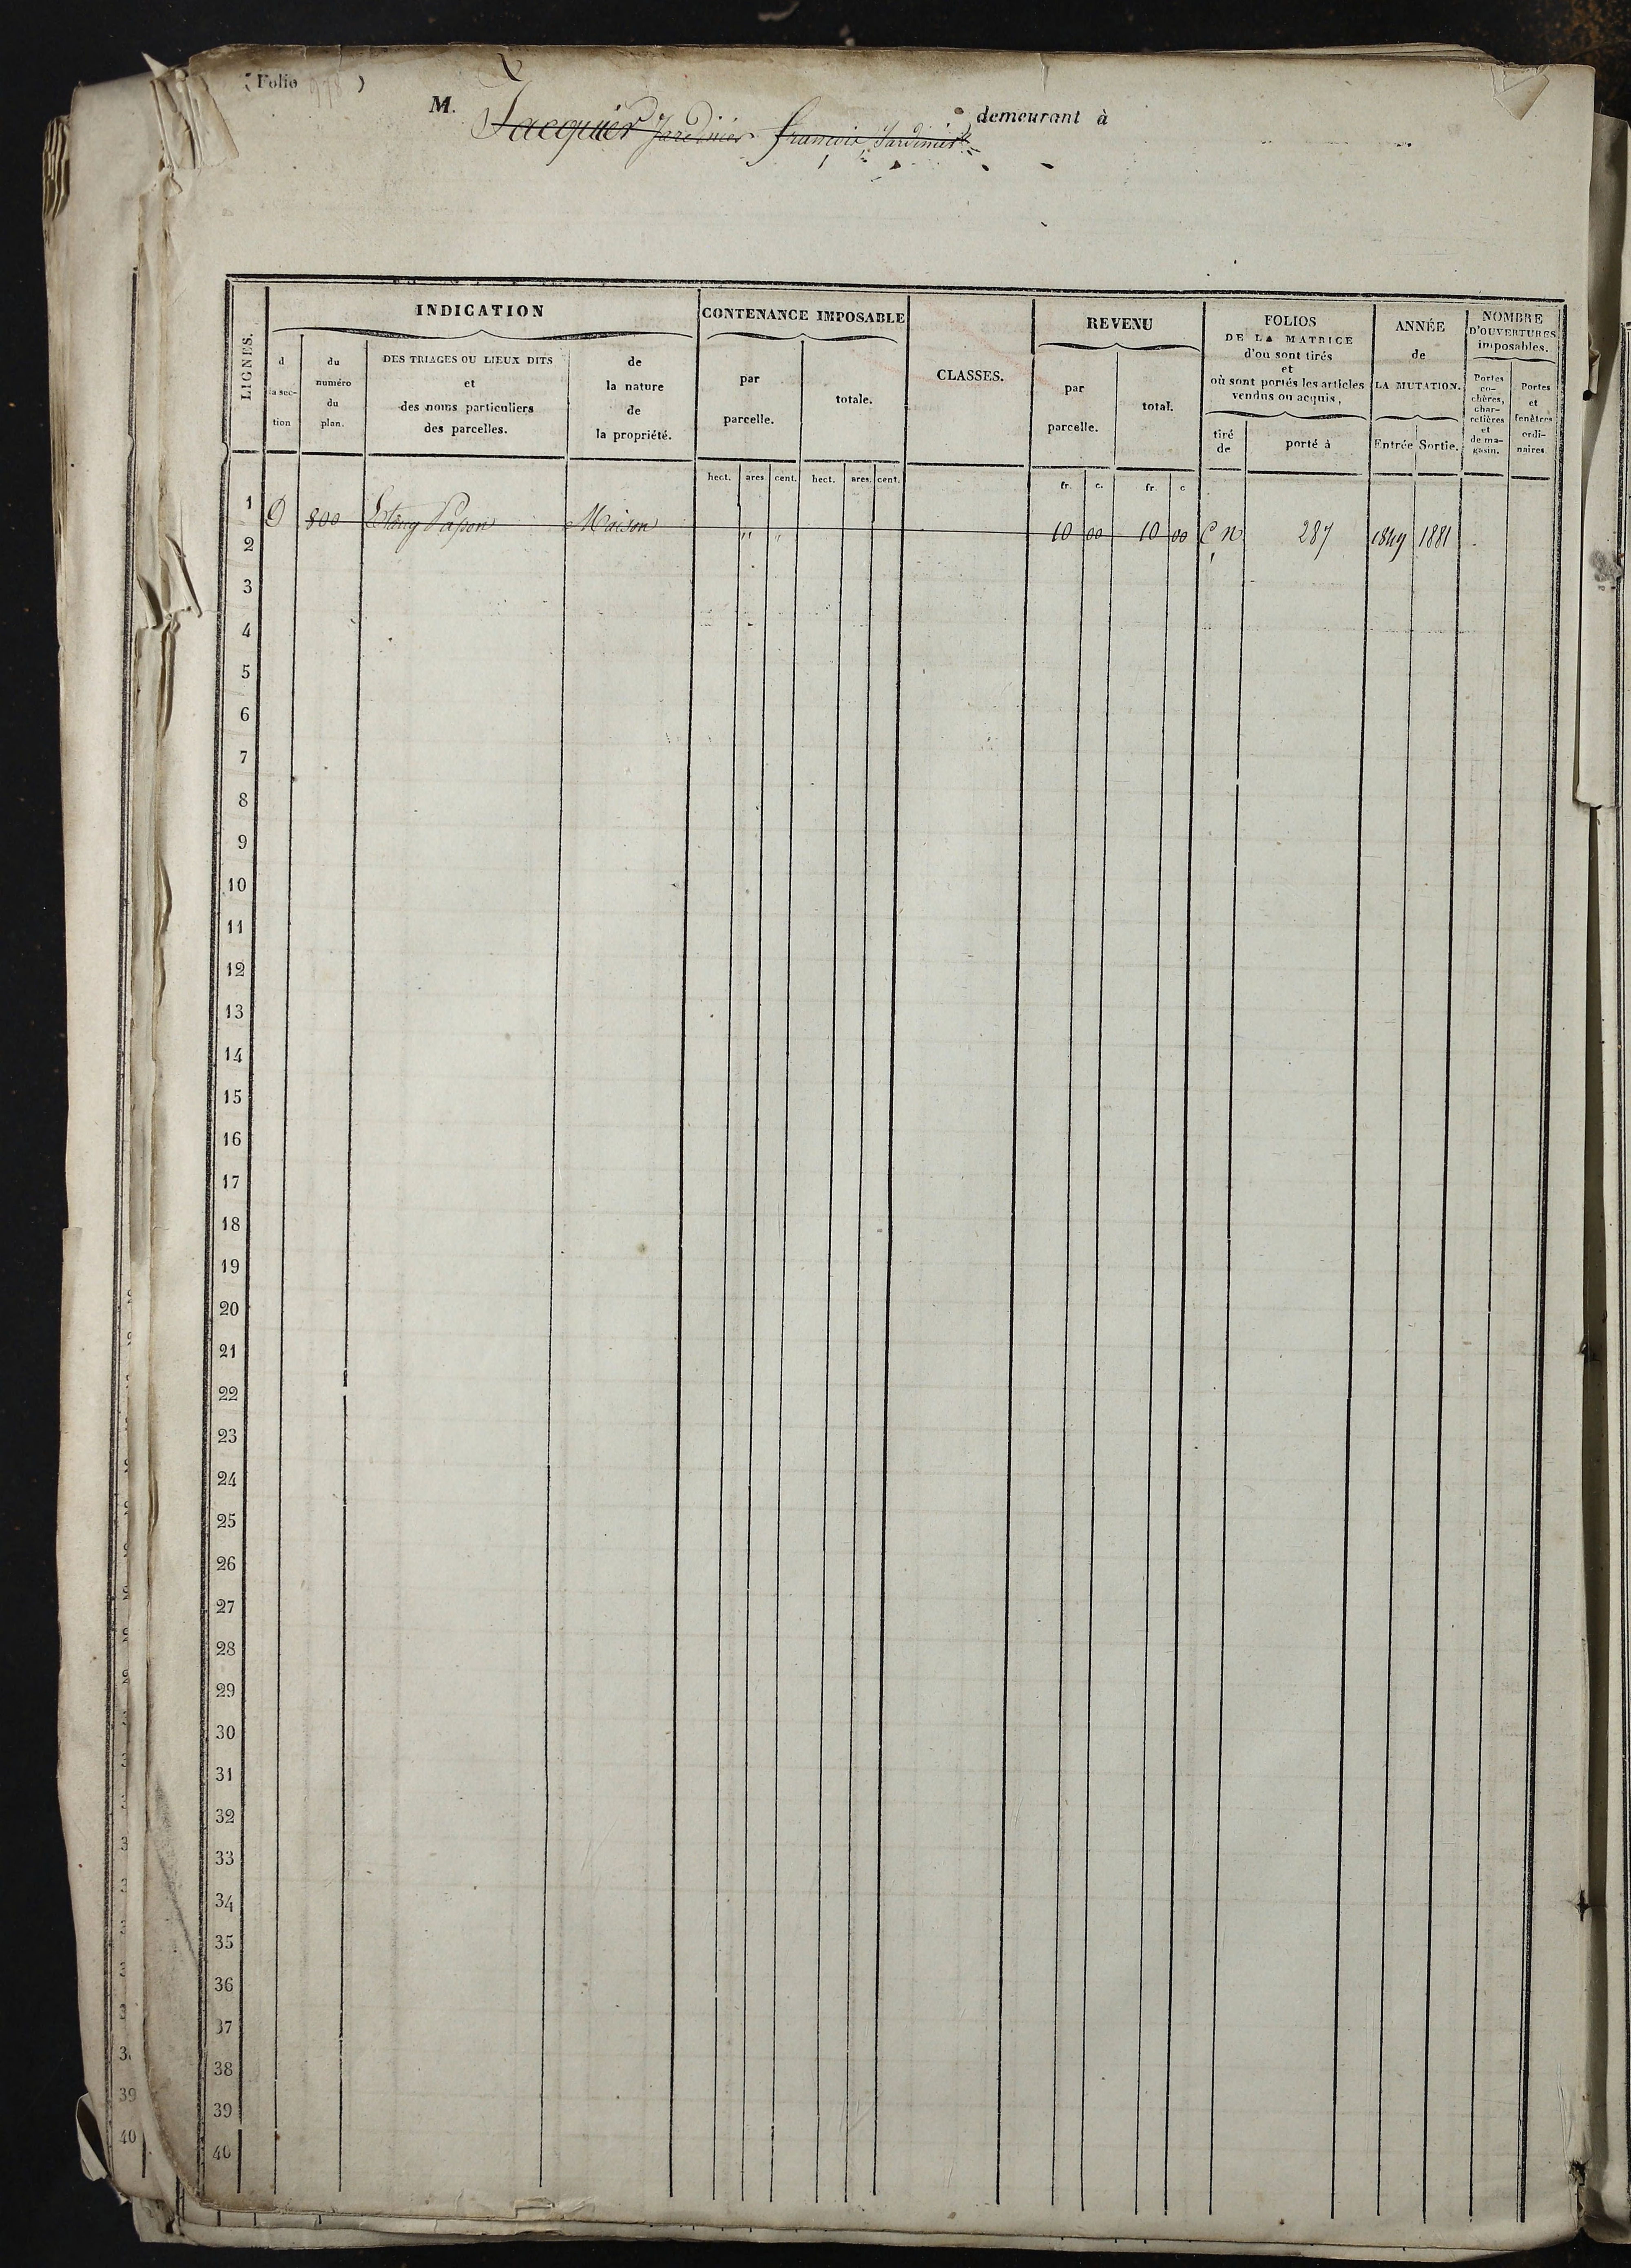 ( Folio 978 )
M. Jacquier Jardinier françois Jardinier demeurant à
LIGNES.
INDICATION
d la section
du numéro du plan.
DES TRIAGES OU LIEUX DITS et des noms particuliers des parcelles.
de la nature de la propriété.
CONTENANCE IMPOSABLE
par parcelle.
totale.
CLASSES.
REVENU
par parcelle.
total.
FOLIOS DE LA MATRICE d'où sont tirés et où sont portés les articles vendus ou acquis,
tiré de
porté à
ANNÉE de LA MUTATION.
Entrée Sortie.
NOMBRE D'OUVERTURES imposables.
Portes cochères, charretières et de magasin.
Portes et fenêtres ordinaires
hect. ares cent. hect. ares. cent. fr. c. fr. c
1 D 800 Etang Papon Maison " " 10 00 10 00 C n 287 1849 1881
2
3
4
5
6
7
8
9
10
11
12
13
14
15
16
17
18
19
20
21
22
23
24
25
26
27
28
29
30
31
32
33
34
35
36
37
38
39
40
39
40